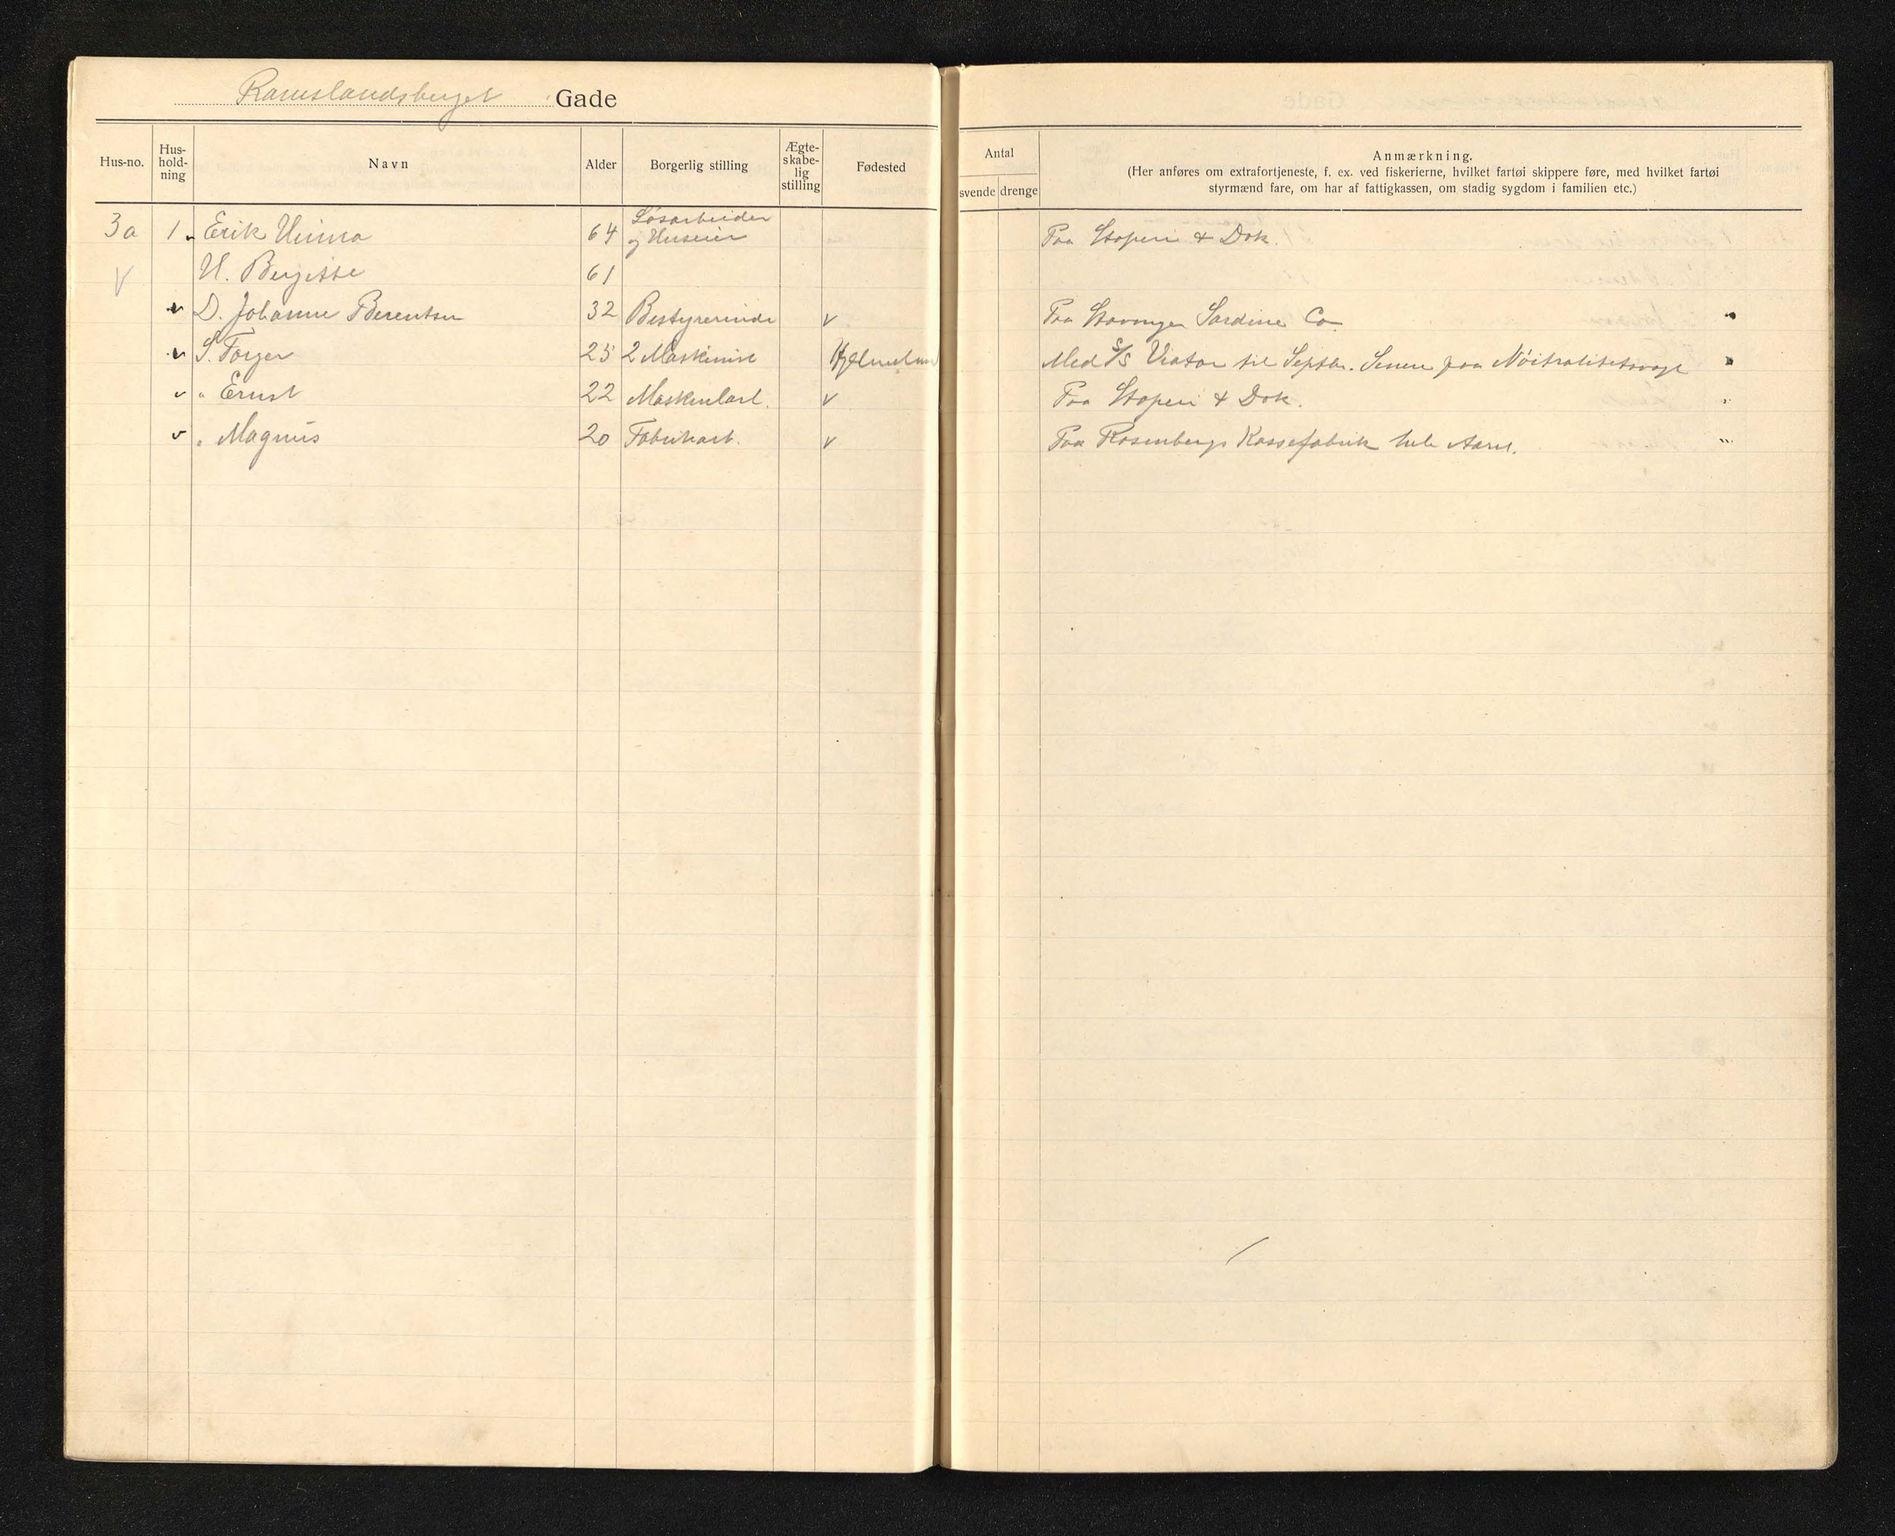 Ramslandsberget Gade
Hus-no. Hus-hold-ning Navn Alder Borgerlig stilling Ægte-skabe-lig stilling Fødested Antal svende drenge Anmærkning.
(Her anføres om extrafortjeneste, f. ex. ved fiskerierne, hvilket fartøi skippere føre, med hvilket fartøi
styrmænd fare, om har af fattigkassen, om stadig sygdom i familien etc.)
3a 1 Erik 64 Løsarbeider og Huseier Paa Støperi & Dok.
V H. Bergitte 61
v D. Johanne Berentsen 32 Bestyrerinde v Paa Stavanger Sardine Co. "
v S. Torger 25 2 Maskinist Med S/S Viator til Septbr. Senere paa Nøitralitetsvagt "
v " Ernst 22 Maskinlærl. v Paa Støperi & Dok. "
v " Magnus 20 Fabrikarb. v Paa Rosenbergs Kassefabrik hele Aaret. "